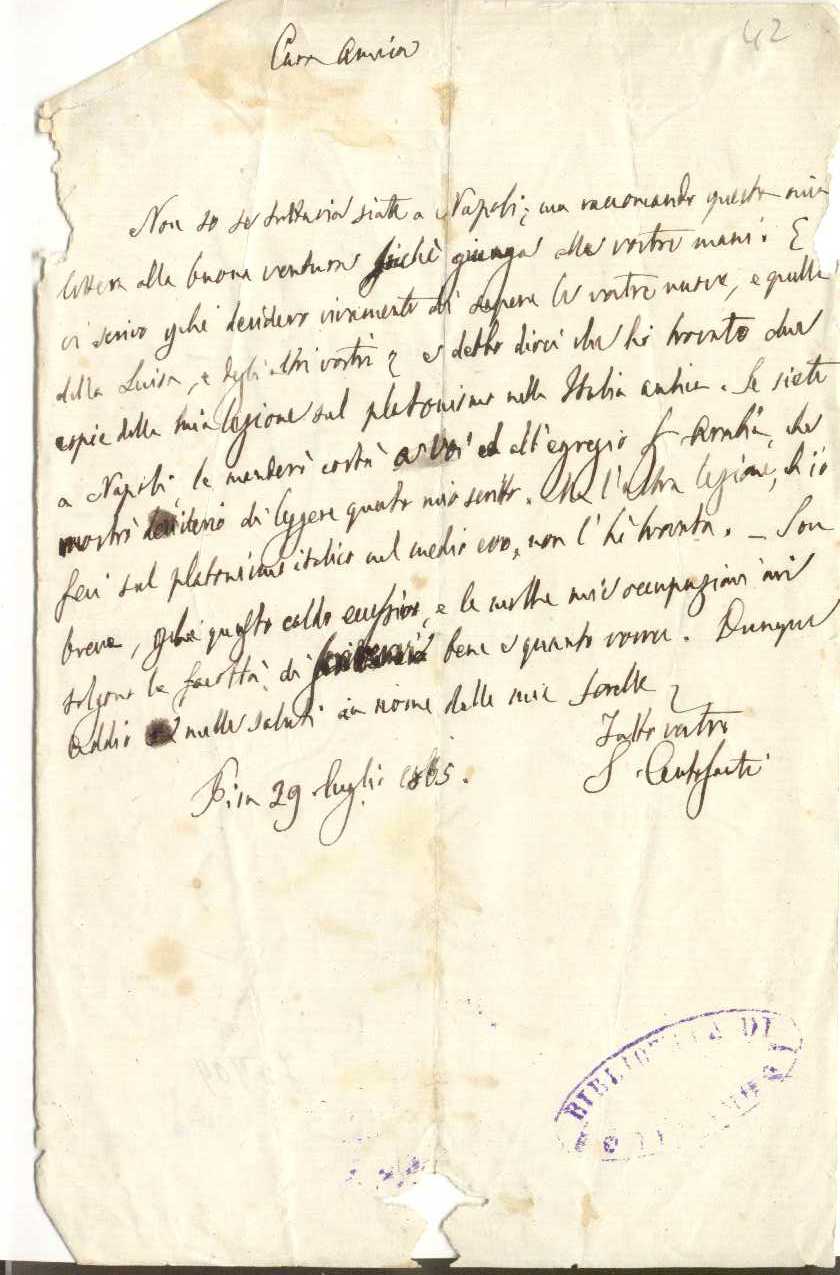 42
Cara Amica
Non so se tuttavia siate a Napoli; ma raccomando questa mia
lettera alla buona ventura giunga alle vostre mani. E
vi scrivo desidero vivamente di sapere le vostre nuove, e quelle
della Luisa, e degli altri vostri e debbo dirvi che ho trovato due
copie della mia lezione sul platonismo nella Italia antica. Se siete
a Napoli, le manderò costà a voi ed all'egregio che
mostrò desiderio di leggere questo mio scritto. Ma l'altra lezione, ch'io
feci sul platonismo italico nel medio evo, non l'ho trovata. – Son
breve, questo caldo eccessivo, e le molte mie occupazioni mi
tolgono la facoltà di bene e quanto vorrei. Dunque
addio mille saluti in nome delle mie sorelle
Tutto vostro
S Centofanti
Pisa 29 luglio 1865.
BIBLIOTECA DI